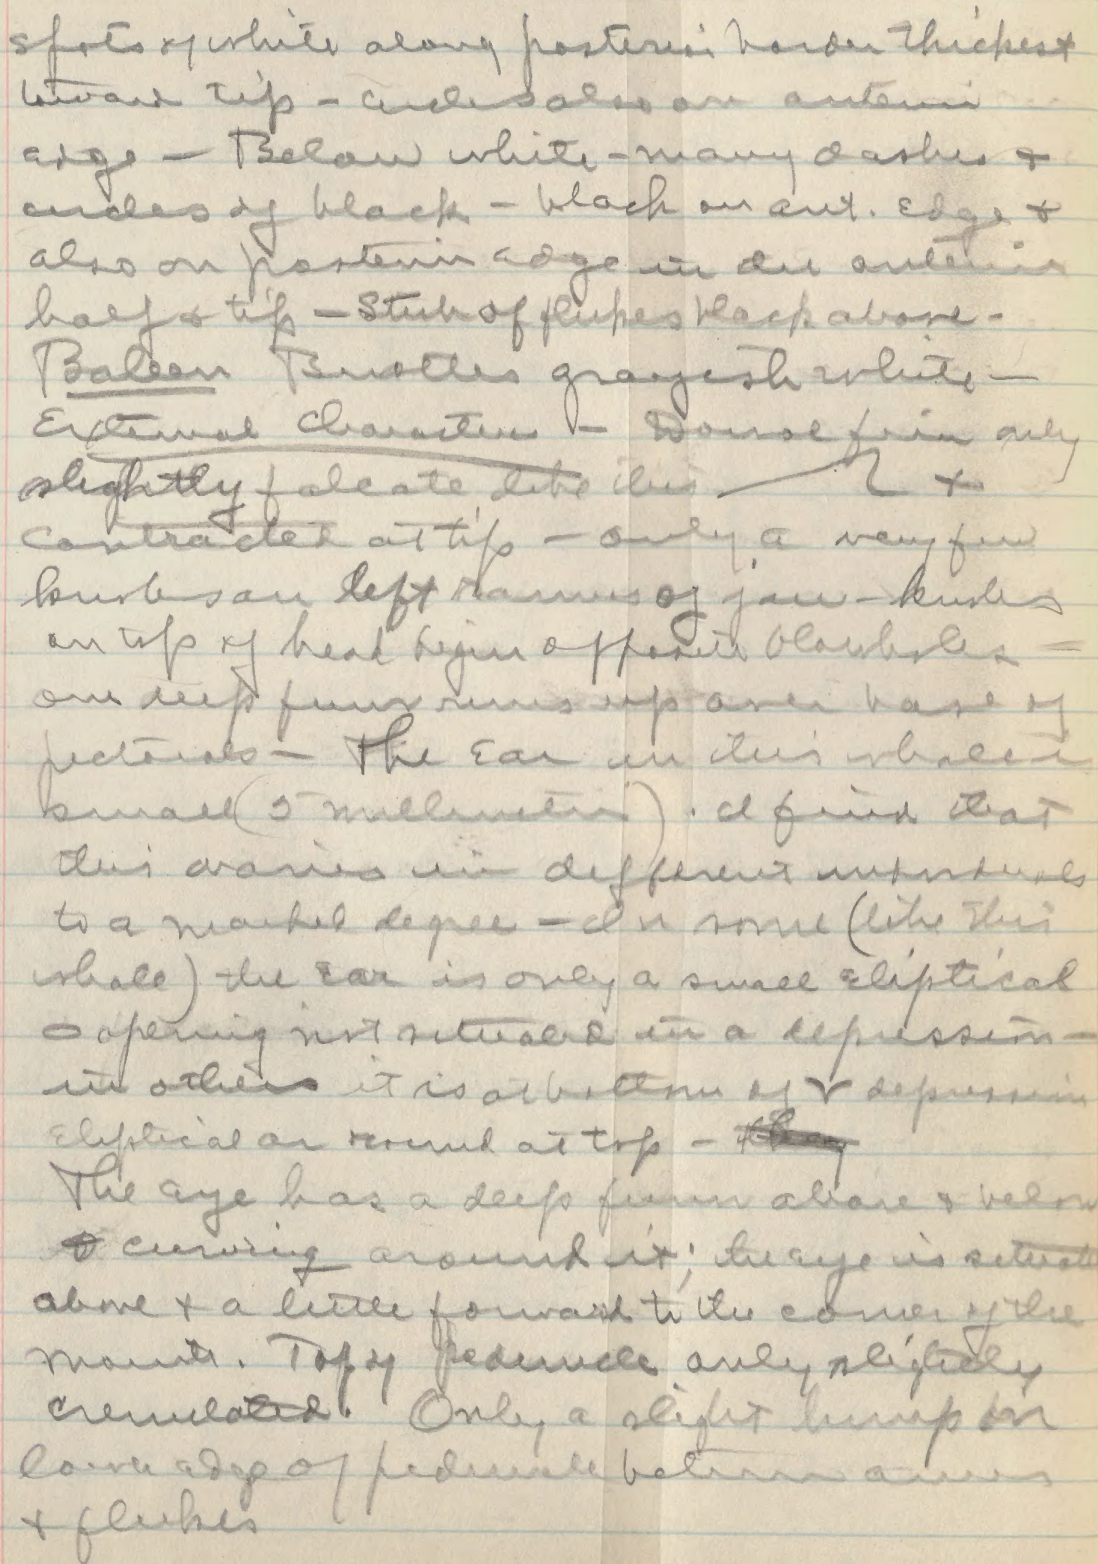 spots of white along posterior border thickest
toward tip - circles also on anterior
edge - Below white - many dashes &
circles of black - black on ant. edge &
also on posterior edge in the anterior
half & tip - Stub of flukes black above -
Baleen Bristles grayish white -
External Characters - Dorsal fin only
slightly falcate like this &
contracted at tip - only a very few
knobs on left ramus of jaw - knobs
on top of head begin opposite blowholes -
one deep furrow runs up over base of
pectorals - The Ear in this whale is
small (5 millimeters). I find that
this varies in different individuals
to a marked degree - In some (like this
whale) the ear is only a small eliptical
opening not situated in a depression -
in others it is at bottom of V depression
Eliptical or round at top - they
The eye has a deep furrow above & below
& curving around it; the eye is situated
above & a little forward to the corner of the
mouth. Top of peduncle only slightly
crenulated. Only a slight hump on
lower edge of peduncle between anus
& flukes